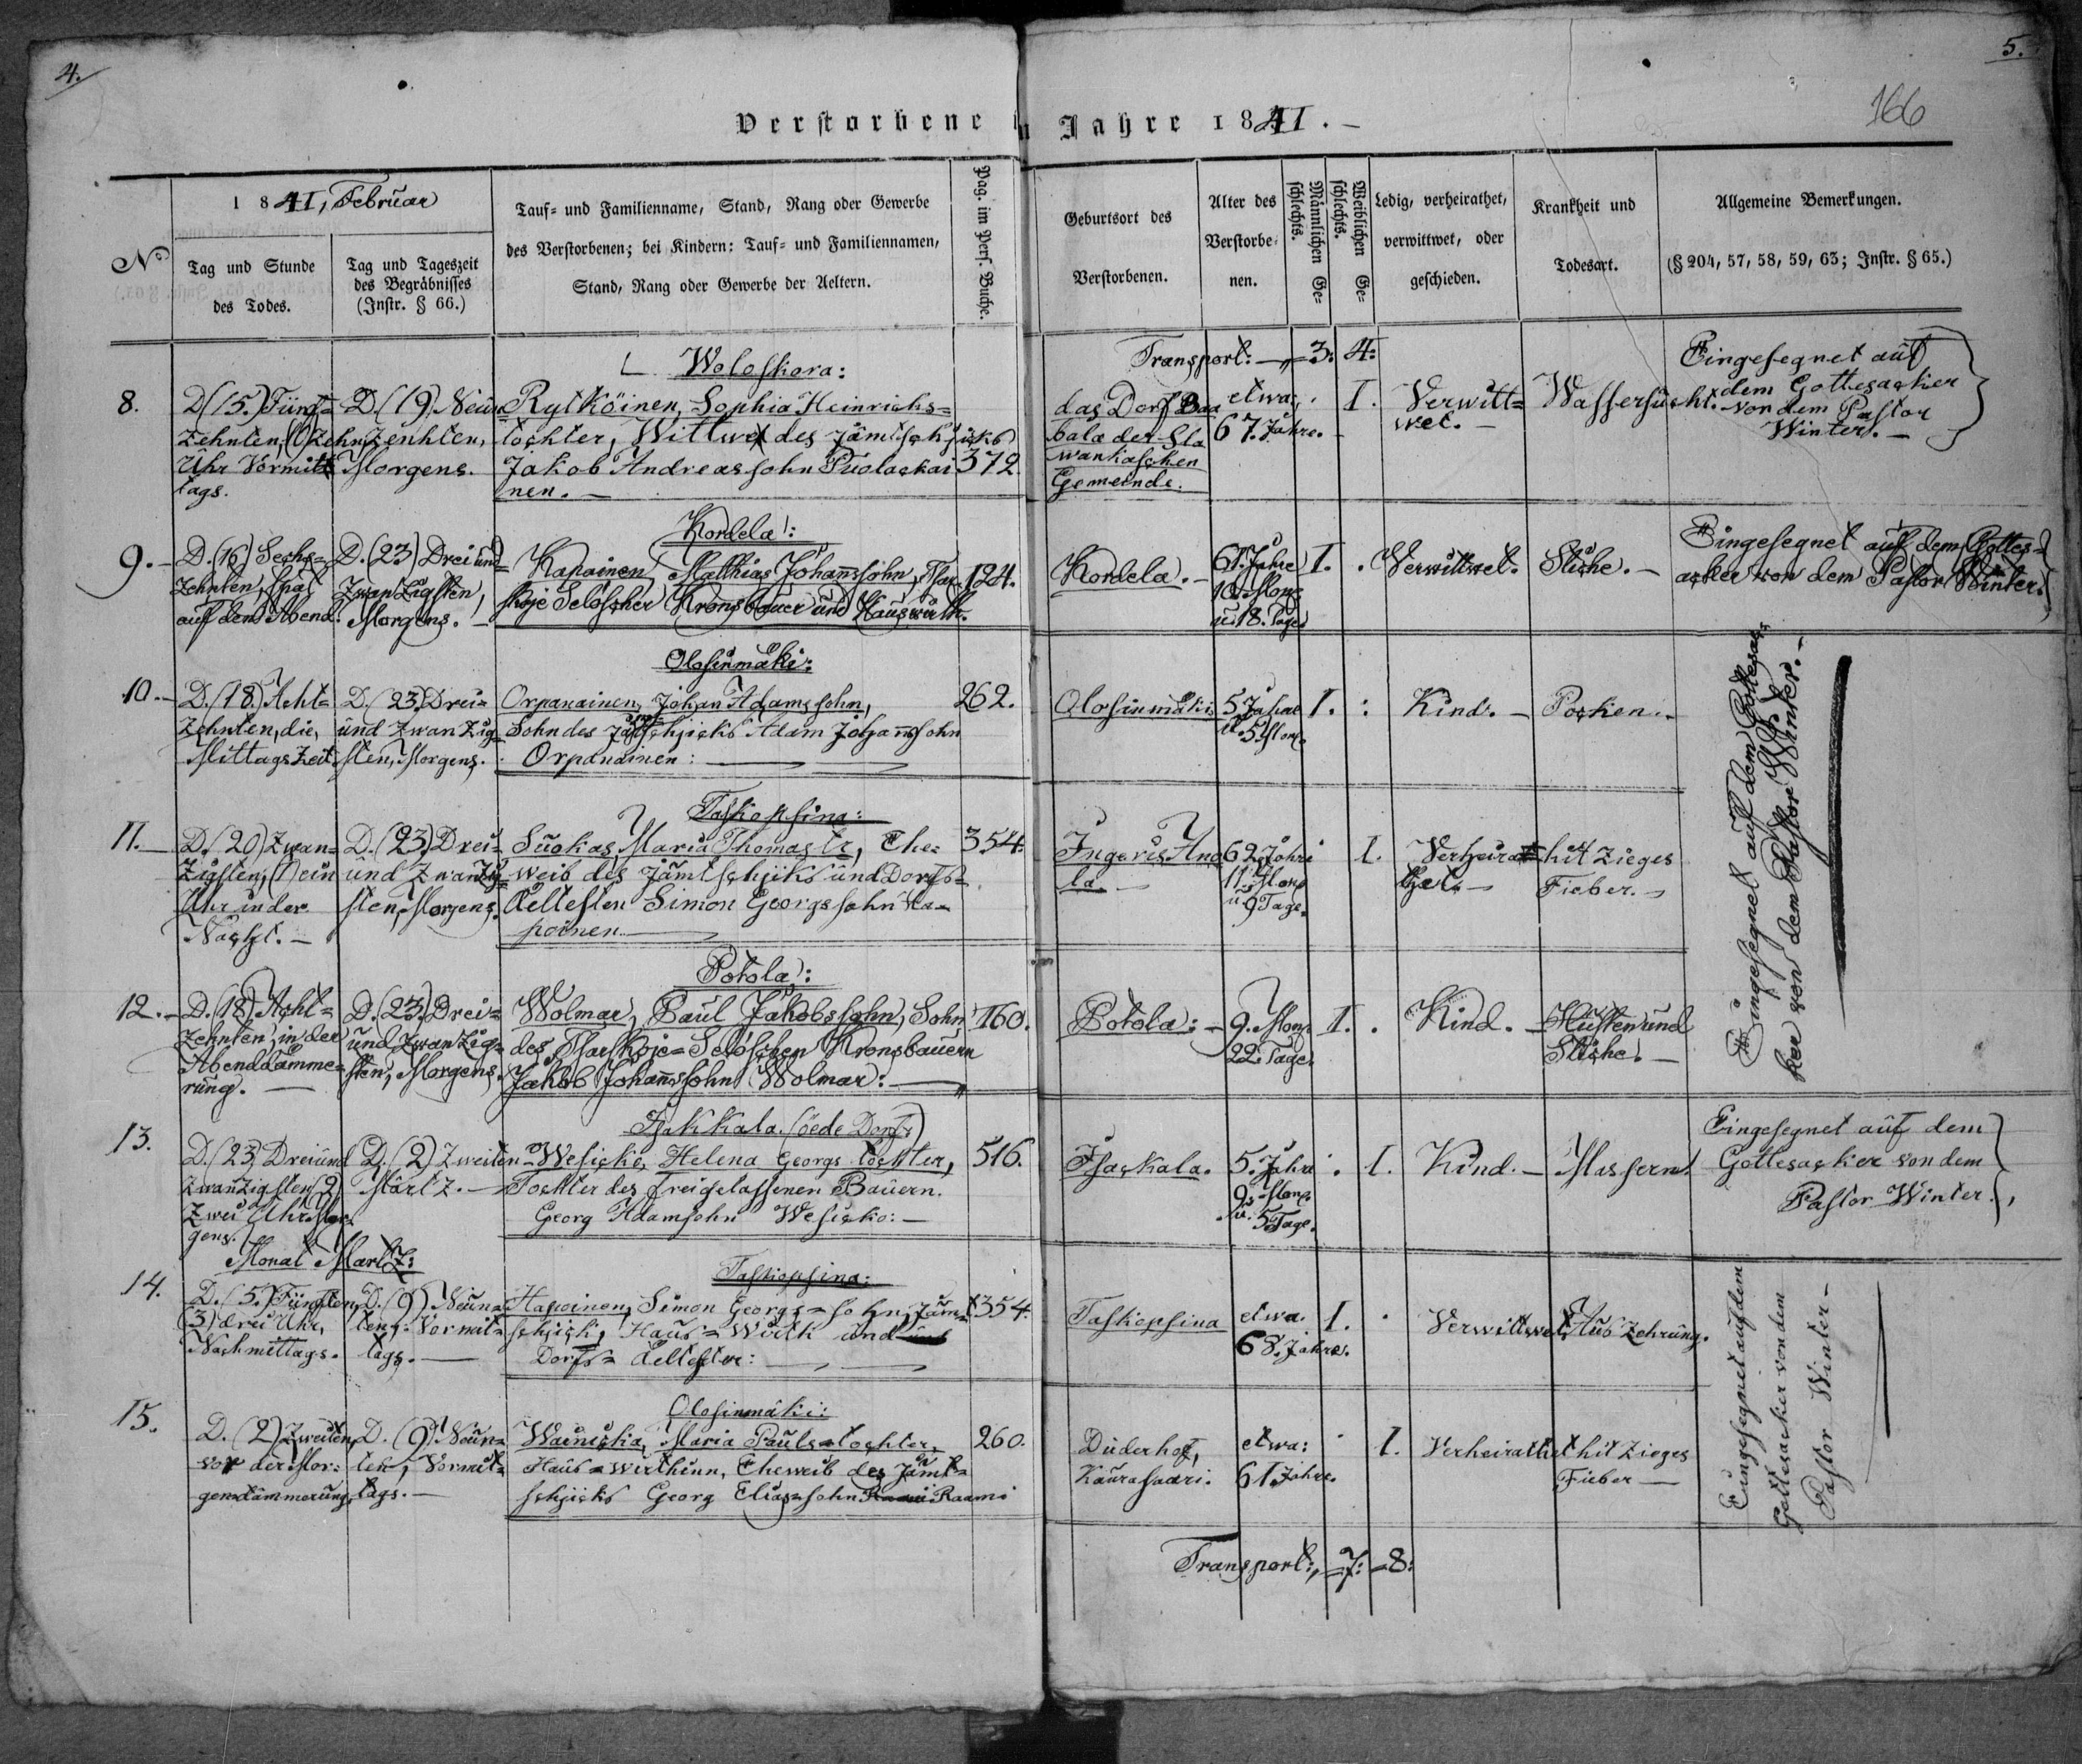 4.
5.
166
Verstorbene in Jahre 1841.
1841, Februar
No
Tag und Stunde
des Todes.
Tag und Tageszeit
des Begräbnisses
(Instr. § 66.)
Tauf= und Familienname, Stand, Rang oder Gewerbe
des Verstorbenen; bei Kindern: Tauf= und Familiennamen,
Stand, Rang oder Gewerbe der Aeltern.
Pag. im Pers. Buche.
Geburtsort des
Verstorbenen.
Alter des
Verstorbe-
nen.
Männlichen Ge-
schlechts.
Weiblichen Ge-
schlechts.
Ledig, verheirathet,
verwittwet, oder
geschieden.
Krankheit und
Todesart.
Allgemeine Bemerkungen.
(§ 204, 57, 58, 59, 63; Instr. § 65.)
Woloskora:
Transport: 3: 4:
8.
D (15.) Fünf=
zehnten, (10) zehn
Uhr Vormit
tags.
D. (19) Neun
zenhten,
Morgens.
Rytköinen, Sophia Heinrichs=
tochter, Wittwe des Jämtschjiks
Jakob Andreassohn Puolackai
nen.
372
das Dorf Baa
bala der Sla
wankaschen
Gemeinde.
etwa
67. Jahre.
I.
Verwitt=
wet.
Wassersucht.
Eingesegnet auf
dem Gottesacker
von dem Pastor
Winter.
Kordela:
9.
D. (16) Sechs=
zehnten, spät
auf den Abend.
D. (23) Drei und=
zwanzigsten,
Morgens.
Kapainen, Matthias Johannssohn, Zars=
skoje Seloscher Kronsbauer und Hauswirth.
124.
Kordela.
61. Jahre
10. Mon.
u. 18. Tage
I.
Verwittwet.
Stiche.
Eingesegnet auf dem Gottes=
acker von dem Pastor Winter.
Olosinmäki:
10.
D. (18.) Acht=
zehnten, die
Mittagszeit
D. (23) Drei=
und zwanzig=
sten, Morgens.
Orpanainen, Johan Adamssohn,
Sohn des Jämtschjicks Adam Johannssohn
Orpanainen:
262.
Olosinmäki
5 Jahre
u. 5 Mon.
I.
Kind.
Pocken.
Eingesegnet auf dem Gottesac=
ker von dem Pastor Winter.
Taskopsina:
11.
D. (20) Zwan=
zigsten, (1) ein
Uhr in der
Nacht.
D. (23) Drei=
und zwanzig=
sten, Morgens.
Suokas, Maria Thomas tr, Ehe=
weib des Jämtschjiks und Dorfs=
Aeltesten Simon Georgssohn Ha=
poinen.
354.
Ingeris Ano
la.
62 Jahre
11. Mon.
u. 9 Tage.
I.
Verheirat
het.
hitziges
Fieber.
Potola:
12.
D. (18) Acht=
zehnten, in der
Abenddämme=
rung.
D. (23) Drei=
und zwanzig=
sten, Morgens.
Wolmar, Paul Jakobssohn, Sohn
des Zarskoje=Seloschen Kronsbauern
Jakob Johannssohn Wolmar:
160.
Potola:
9. Mon.
22. Tage.
I.
Kind.
Husten und
Stiche.
Isakkala (öede Dorf)
13.
D. (23) Drei und
zwanzigsten (2)
Zwei Uhr Mor=
gens.
D. (2) Zweiten
Märtz.
Wesicko, Helena Georgs tochter,
Tochter des freigelassenen Bauern.
Georg Adamsohn Wesicko:
516.
Isackala.
5. Jahre
9. Mon.
u. 5 Tage.
I.
Kind.
Massern.
Eingesegnet auf dem
Gottesacker von dem
Pastor Winter.
Monat Martz:
Taskopsina:
14.
D. (5.) Fünften,
(3) drei Uhr,
Nachmittags.
D. (9) Neun=
ten, Vormit=
tags.
Hapoinen, Simon Georgs=sohn, Jämt
schjick, Haus=Wirth und
Dorfs=Aeltester:
354.
Taskopsina
etwa.
68. Jahre.
I.
Verwittwet.
Auszehrung.
Eingesegnet auf dem
Gottesacker von dem
Pastor Winter
Olosinmäki:
15.
D. (2) Zweiten,
vor der Mor=
gendämmerung.
D. (9) Neun=
ten, Vormit=
tags.
Wainicka, Maria Pauls=tochter,
Haus=wirthinn, Eheweib des Jämt=
schjicks Georg Elias=sohn Raami
260.
Duderhof,
Kaurasaari.
etwa:
61. Jahre.
I.
Verheirathet
hitziges
Fieber
Transport: 7: 8: